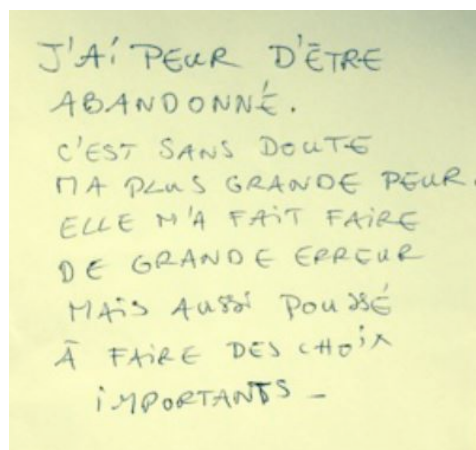 J'Aí PEUR D'ÊTRE
ABANDONNÉ.
C'EST SANS DOUTE
MA PLUS GRANDE PEUR.
ELLE M'A FAIT FAIRE
DE GRANDE ERREUR
MAIS AUSSI POUSSÉ
À FAIRE DES CHOIX
IMPORTANTS –